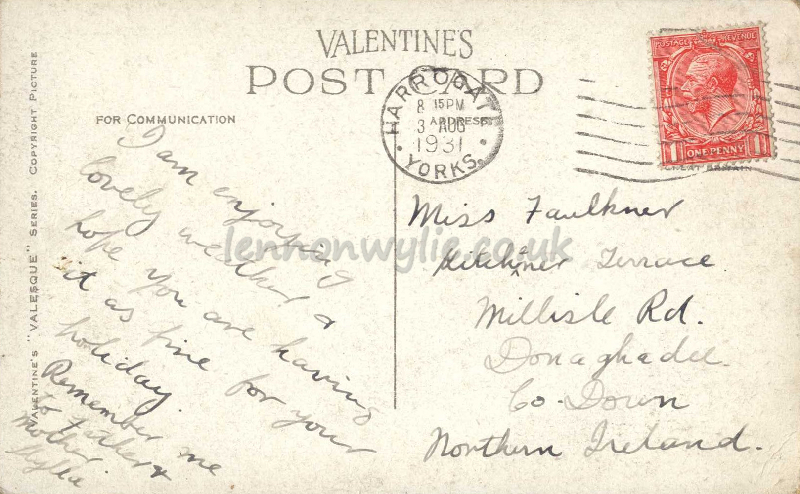 VALENTINE'S
POST CARD
FOR COMMUNICATION
ADDRESS
HARROGATE
8 15PM
3 AUG
1931
YORKS.
POSTAGE REVENUE
1 ONE PENNY 1
GREAT BRITAIN
VALENTINE'S "VALESQUE" SERIES. COPYRIGHT PICTURE
I am enjoying
lovely weather &
hope you are having
it as fine for your
holiday.
Remember me
to Father &
Mother.
Miss Faulkner
Kitchner Terrace
Millisle Rd.
Donaghadee
Co. Down
Northern Ireland.
lennonwylie.co.uk